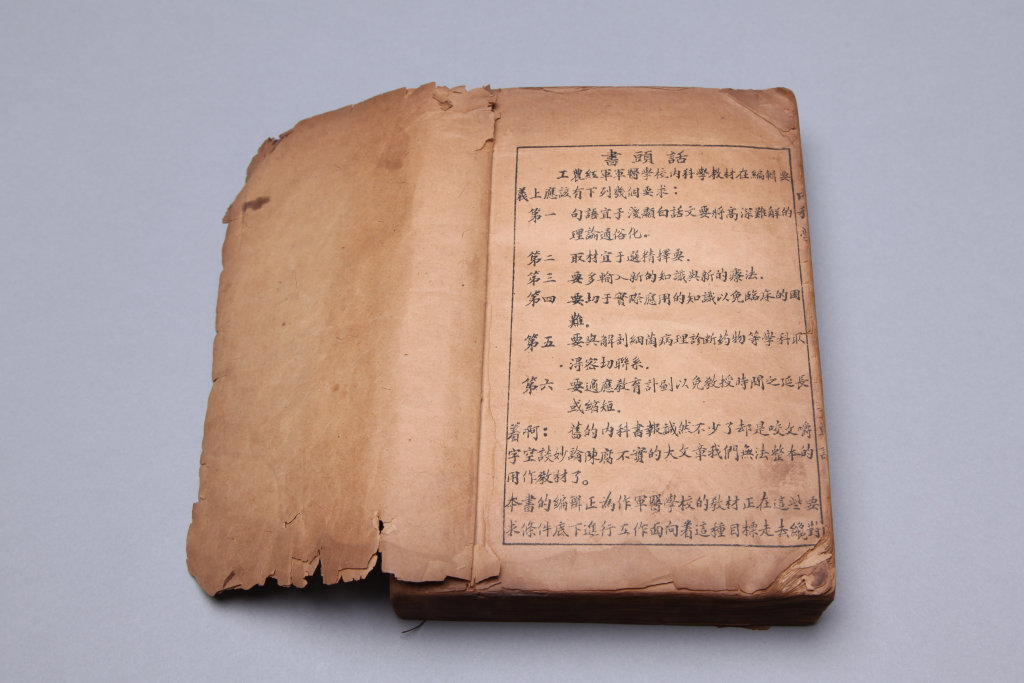 書頭話
工農紅軍軍醫學校内科學教材在編輯要
義上應該有下列幾個要求：
第一 句語宜于淺顯白話文要將高深難解的
理論通俗化。
第二 取材宜于選精擇要.
第三 要多輸入新的知識與新的療法.
第四 要切于實際應用的知識以免臨床的困
難。
第五 要與解剖細菌病理診断葯物等學科取
得密切聯系.
第六 要適應教育計劃以免教授時間之延長
或縮短.
着啊： 舊的内科書報誠然不少了却是咬文嚼
字空談妙論陳腐不實的大文章我們無法整本的
用作教材了。
本書的編輯正為作軍醫學校的教材正在這些要
求條件底下進行工作面向着這種目標走去縂對